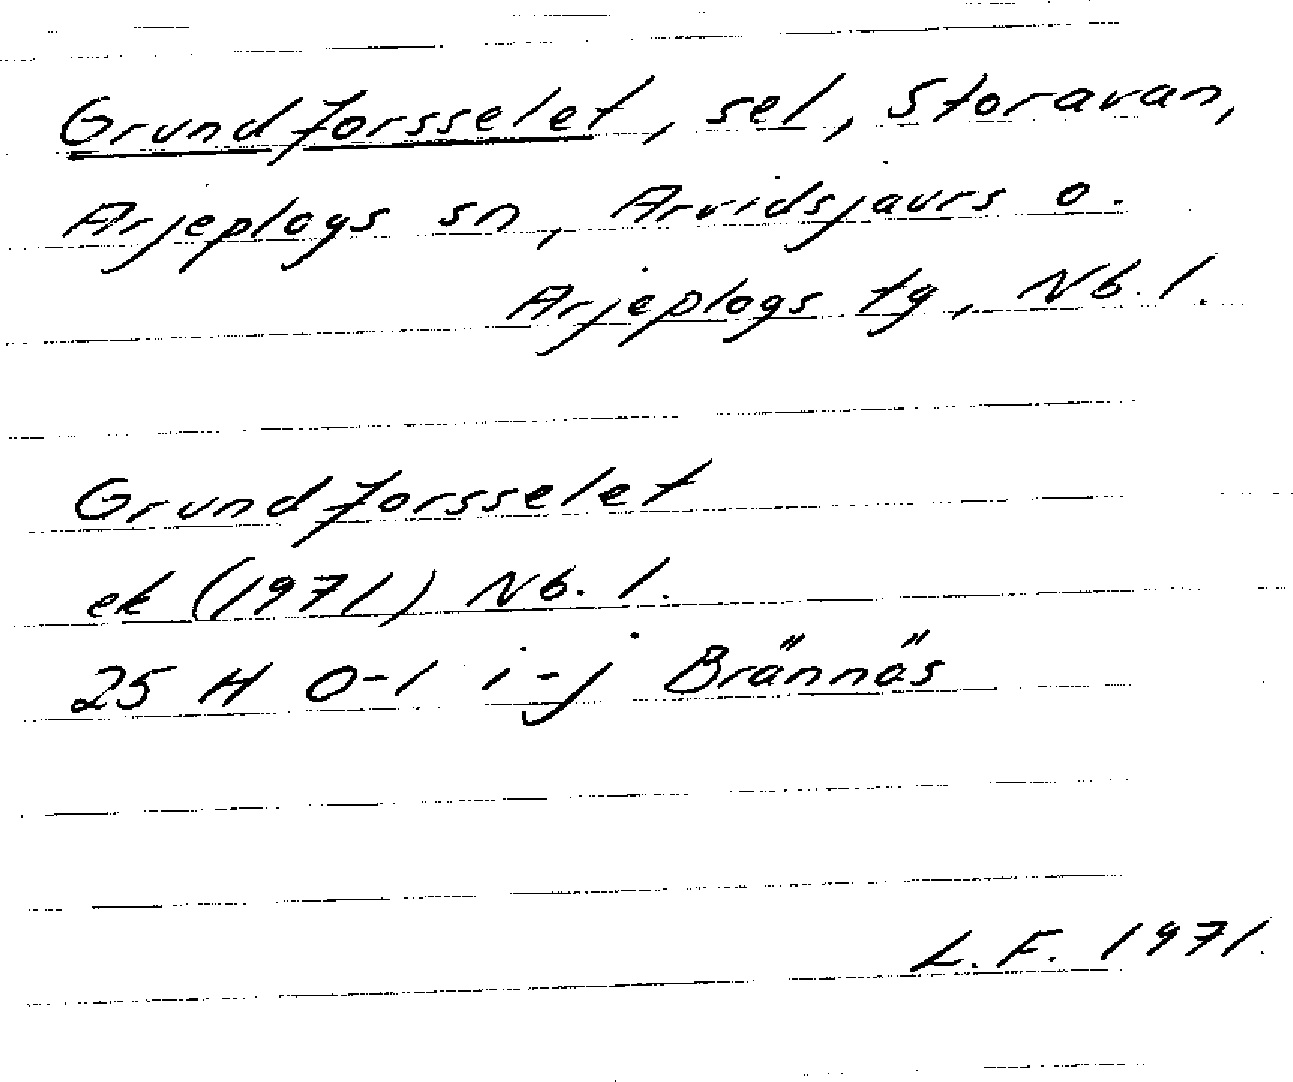 Grundforsselet, sel, Storavan,
Arjeplogs sn, Arvidsjaurs o.
Arjeplogs tg, Nb. l.
Grundforsselet
ek (1971) Nb. l.
25 H 0-1 i-j Brännäs
L. F. 1971.